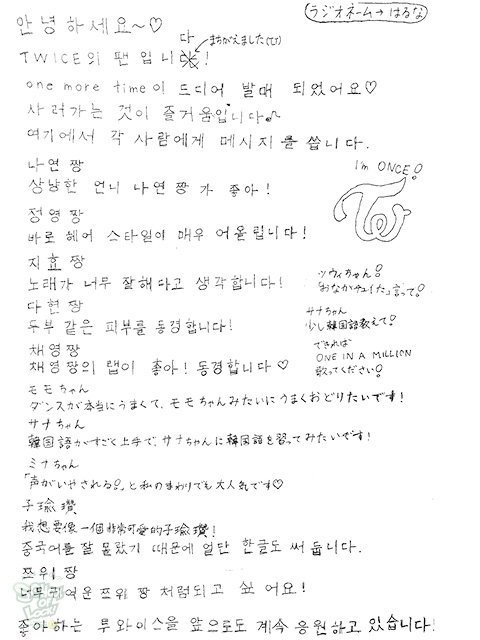 ラジオネーム→はるな
안녕하세요~♡
다
まちがえました(TT)
TWICE의 팬 입니!
one more time이 드디어 발매 되었어요♡
사러가는 것이 즐거움입니다♪
여기에서 각 사람에게 메시지를 씁니다.
나연 짱
상냥한 언니 나연 짱 가 좋아!
I'm ONCE!
정영 짱
바로 헤어 스타일이 매우 어울립니다!
지효 짱
노래가 너무 잘해다고 생각합니다!
다현 짱
두부 같은 피부를 동경합니다!
채영짱
채영짱의 랩이 좋아! 동경합니다♡
ツウィちゃん!
「おなかチュイた」言って!
サナちゃん
少し韓国語教えて!
できれば
ONE IN A MILLION
歌ってください!
モモちゃん
ダンスが本当にうまくて、モモちゃんみたいにうまくおどりたいです!
サナちゃん
韓国語がすごく上手で、サナちゃんに韓国語を習ってみたいです!
ミナちゃん
「声がいやされる?」と私のまわりでも大人気です♡
子瑜瓚
我想要像一個非常可愛的子瑜瓚!
중국어를 잘 몰랐기 때문에 일단 한글도 써 둡니다.
쯔위 짱
너무 귀여운 쯔위 짱 처럼되고 싶어요!
좋아하는 투와이스을 앞으로도 계속 응원하고 있습니다!